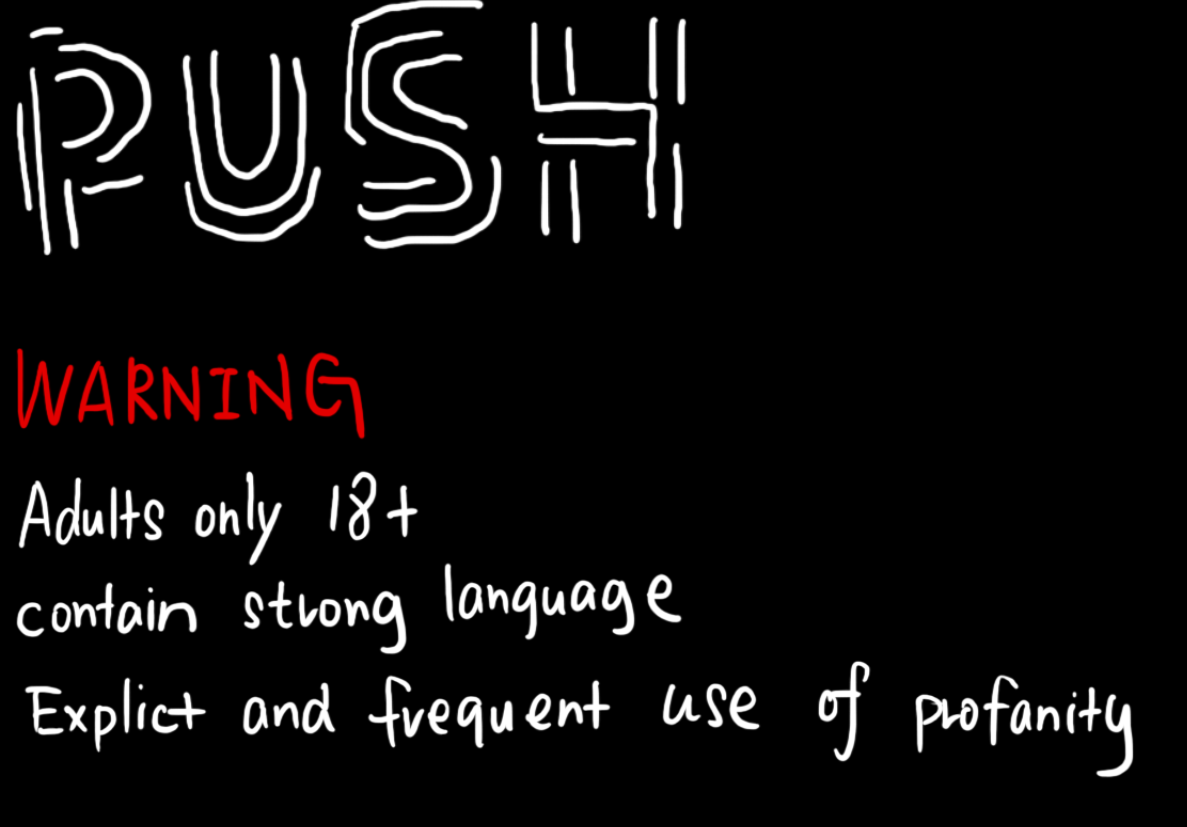 PUSH
WARNING
Adults only 18+
contain strong language
Explict and frequent use of profanity